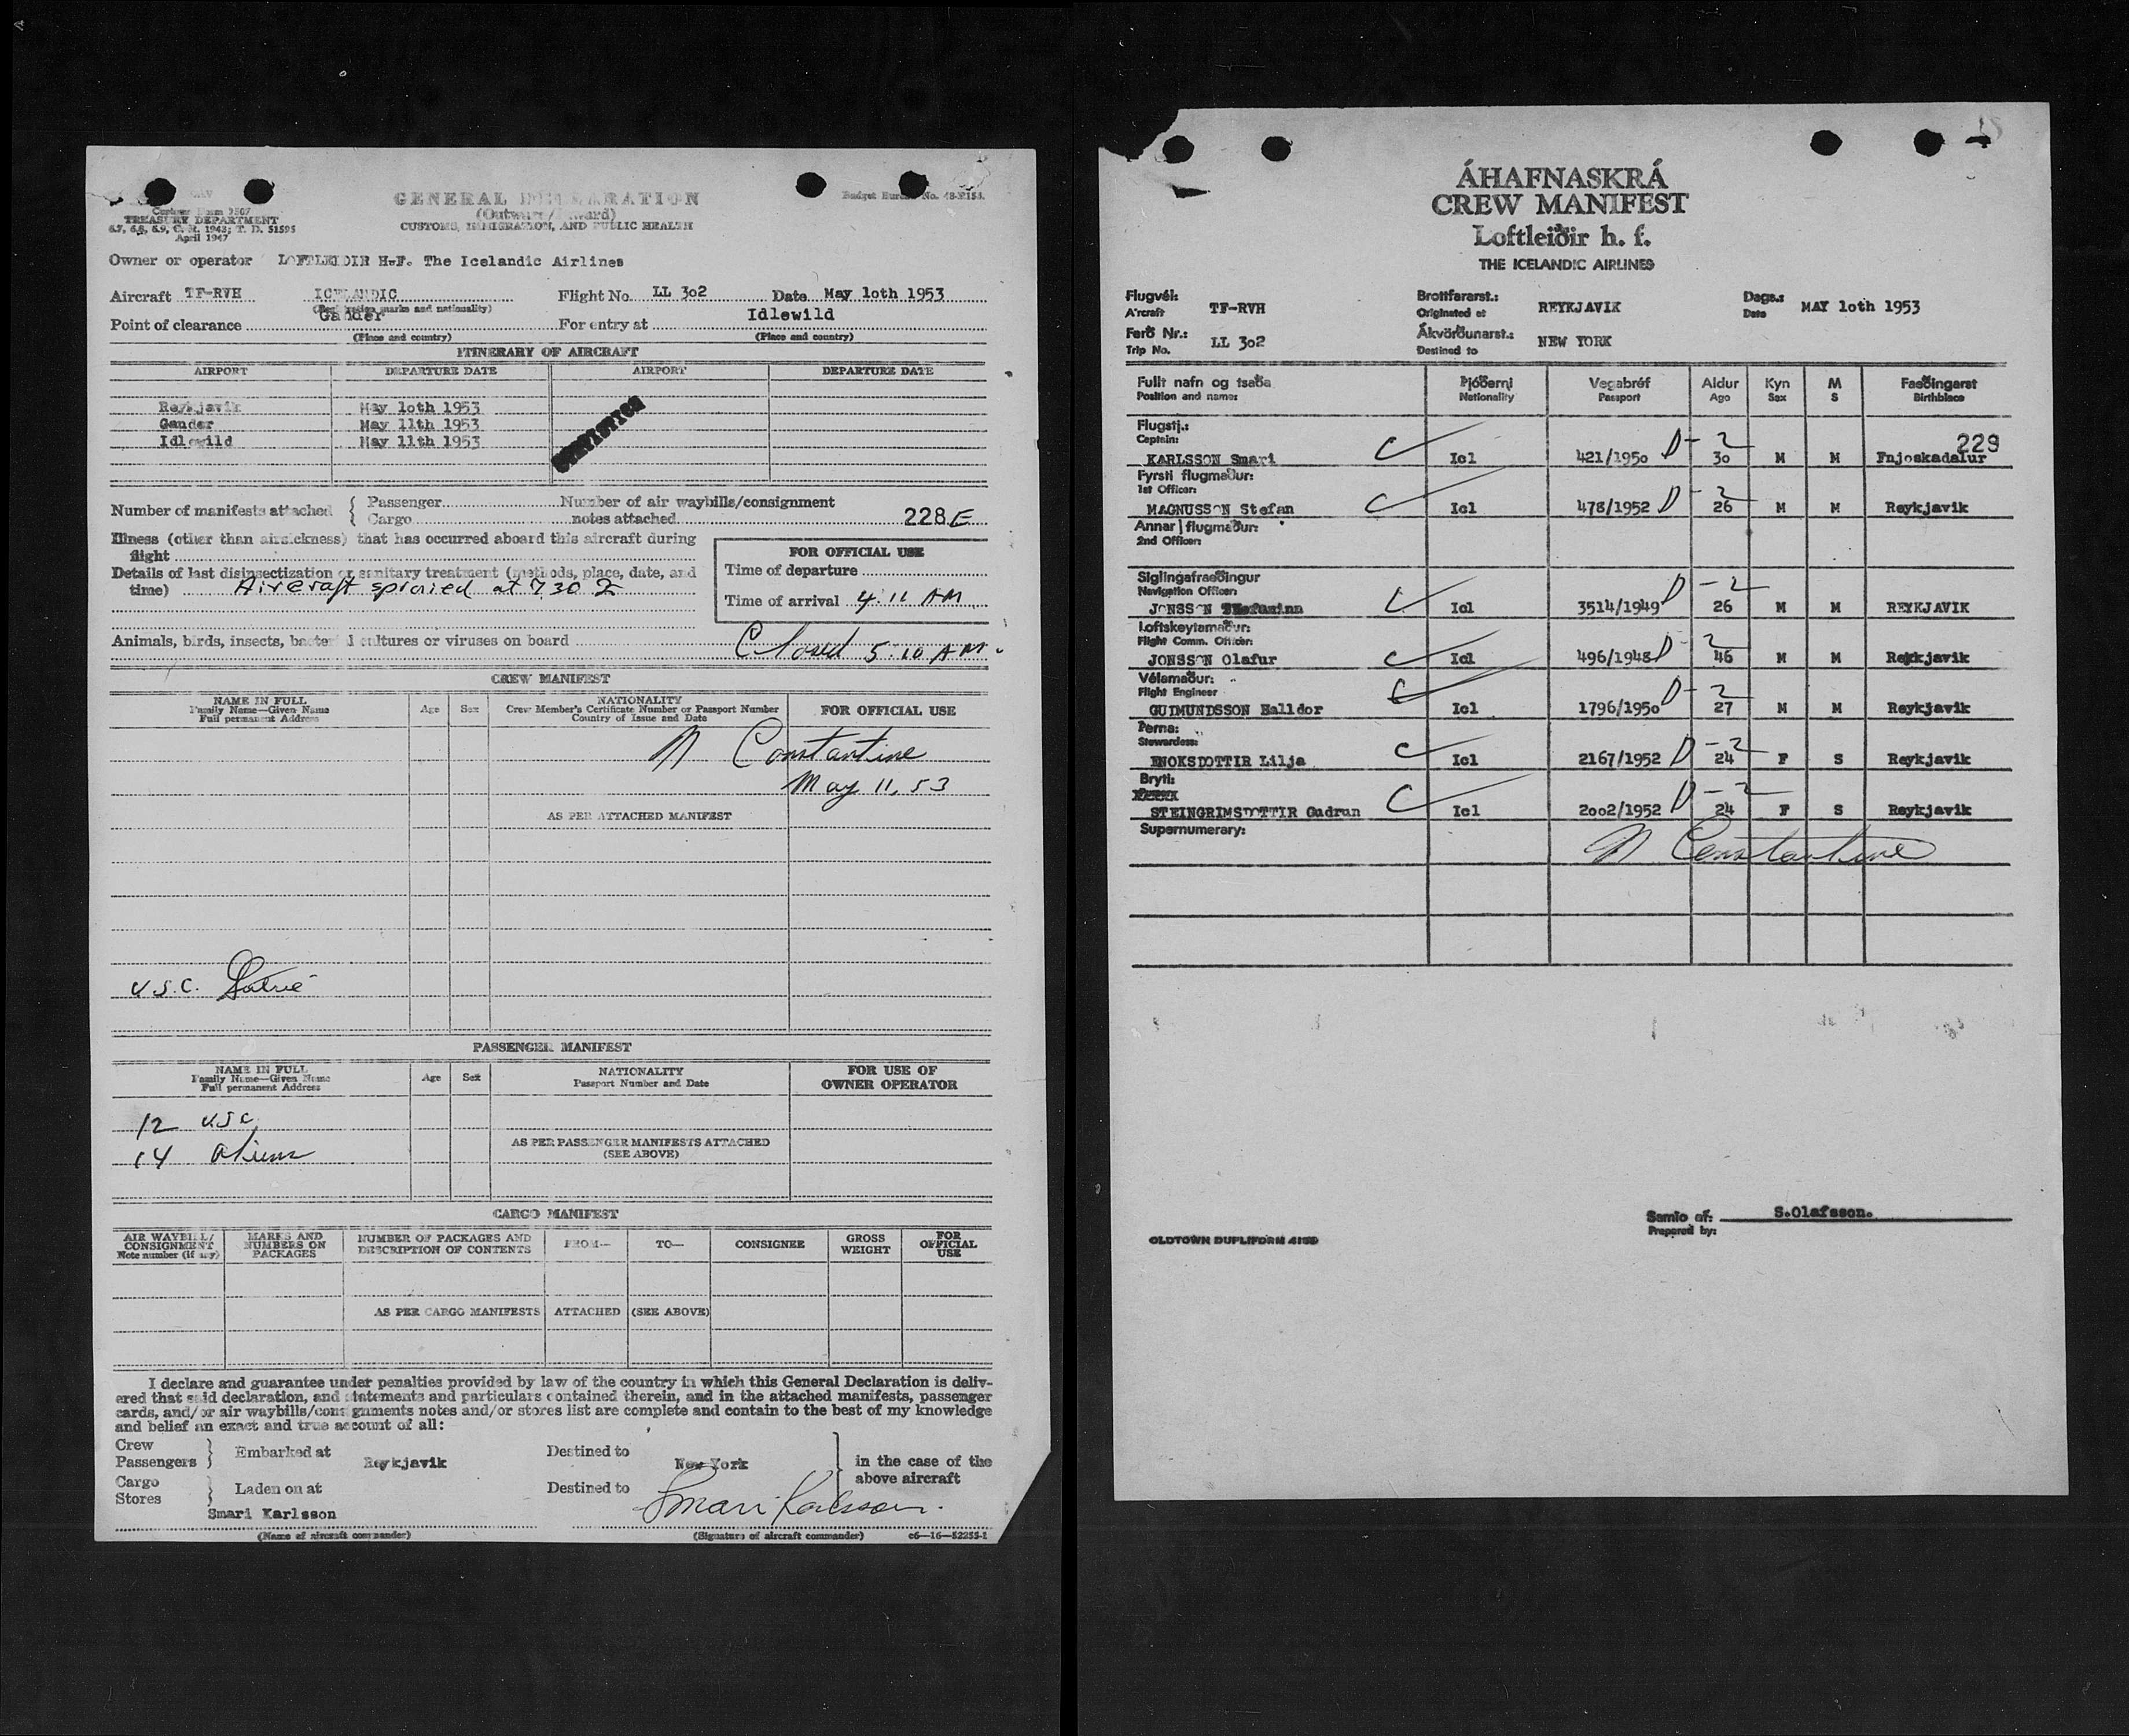 GENERAL DECLARATION
Budget Bureau No.
(Outward/Inward)
Customs Form 7507
TREASURY DEPARTMENT
6.7, 6.8, 6.9, C. R. 1943; T. D. 51595
April 1947
CUSTOMS, IMMIGRATION, AND PUBLIC HEALTH
Owner or operator LOFTLEIDIR H.F. The Icelandic Airlines
Aircraft TF-RVH ICELANDIC Flight No. LL 3o2 Date May 1oth 1953
(Registration marks and nationality)
Point of clearance Gander For entry at Idlewild
(Place and country) (Place and country)
ITINERARY OF AIRCRAFT
AIRPORT DEPARTURE DATE AIRPORT DEPARTURE DATE
Reykjavik May 1oth 1953
Gander May 11th 1953
Idlewild May 11th 1953
Number of manifests attached { Passenger Number of air waybills/consignment
Cargo notes attached 228 E
Illness (other than airsickness) that has occurred aboard this aircraft during
flight
FOR OFFICIAL USE
Time of departure
Details of last disinsectization or sanitary treatment (methods, place, date, and
time) Aircraft sprayed at 730 Z
Time of arrival 4:11 AM
Animals, birds, insects, bacterial cultures or viruses on board
Closed 5:10 AM.
CREW MANIFEST
NAME IN FULL
Family Name—Given Name
Full permanent Address
Age Sex
NATIONALITY
Crew Member's Certificate Number or Passport Number
Country of Issue and Date
FOR OFFICIAL USE
N Constantine
May 11, 53
AS PER ATTACHED MANIFEST
U.S.C.
PASSENGER MANIFEST
NAME IN FULL
Family Name—Given Name
Full permanent Address
Age Sex
NATIONALITY
Passport Number and Date
FOR USE OF
OWNER OPERATOR
12 USC
14 Aliens
AS PER PASSENGER MANIFESTS ATTACHED
(SEE ABOVE)
CARGO MANIFEST
AIR WAYBILL/
CONSIGNMENT
Note number (if any)
MARKS AND
NUMBERS ON
PACKAGES
NUMBER OF PACKAGES AND
DESCRIPTION OF CONTENTS
FROM— TO— CONSIGNEE
GROSS
WEIGHT
FOR
OFFICIAL
USE
AS PER CARGO MANIFESTS ATTACHED (SEE ABOVE)
I declare and guarantee under penalties provided by law of the country in which this General Declaration is deliv-
ered that said declaration, and statements and particulars contained therein, and in the attached manifests, passenger
cards, and/or air waybills/consignments notes and/or stores list are complete and contain to the best of my knowledge
and belief an exact and true account of all:
Crew
Passengers } Embarked at Reykjavik Destined to New York } in the case of the
above aircraft
Cargo
Stores } Laden on at Destined to Smari Karlsson.
Smari Karlsson
(Name of aircraft commander) (Signature of aircraft commander) c6—16—52255-1
ÁHAFNASKRÁ
CREW MANIFEST
Loftleiðir h. f.
THE ICELANDIC AIRLINES
Flugvél: Brottfararst.: Dags.:
Aircraft TF-RVH Originated at REYKJAVIK Date MAY 1oth 1953
Ferð Nr.: Ákvörðunarst.:
Trip No. LL 3o2 Destined to NEW YORK
Fullt nafn og staða Þjóðerni Vegabréf Aldur Kyn M Fæðingarst
Position and name: Nationality Passport Age Sex S Birthplace
Flugstj.:
Captain: D-2 229
KARLSSON Smari Icl 421/195o 3o M M Fnjoskadalur
Fyrsti flugmaður:
1st Officer: D-2
MAGNUSSON Stefan Icl 478/1952 26 M M Reykjavik
Annar flugmaður:
2nd Officer:
Siglingafræðingur
Navigation Officer: D-2
JONSSON Icl 3514/1949 26 M M REYKJAVIK
Loftskeytamaður:
Flight Comm. Officer: D-2
JONSSON Olafur Icl 496/1948 46 M M Reykjavik
Vélamaður:
Flight Engineer D-2
GUDMUNDSSON Halldor Icl 1796/195o 27 M M Reykjavik
Þerna:
Stewardess: D-2
ENOKSDOTTIR Lilja Icl 2167/1952 24 F S Reykjavik
Bryti: D-2
STEINGRIMSDOTTIR Gudrun Icl 2oo2/1952 24 F S Reykjavik
Supernumerary:
N Constantine
Samið af: S.Olafsson.
Prepared by:
OLDTOWN DUPLIFORM